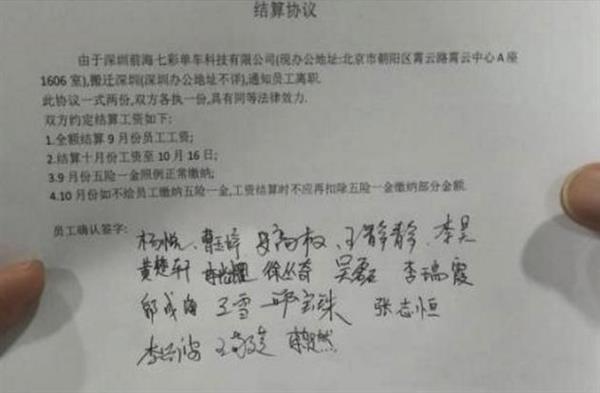 结算协议
由于深圳前海七彩单车科技有限公司(现办公地址:北京市朝阳区霄云路霄云中心A座
1606室),搬迁深圳(深圳办公地址不详),通知员工离职.
此协议一式两份,双方各执一份,具有同等法律效力.
双方约定结算工资如下:
1.全额结算9月份员工工资;
2.结算十月份工资至10月16日;
3.9月份五险一金照例正常缴纳;
4.10月份如不给员工缴纳五险一金,工资结算时不应再扣除五险一金缴纳部分金额.
员工确认签字: 杨悦、 王静静、李昊
黄楚轩 吴磊 李瑞霞
王雪 邱宝珠 张志恒